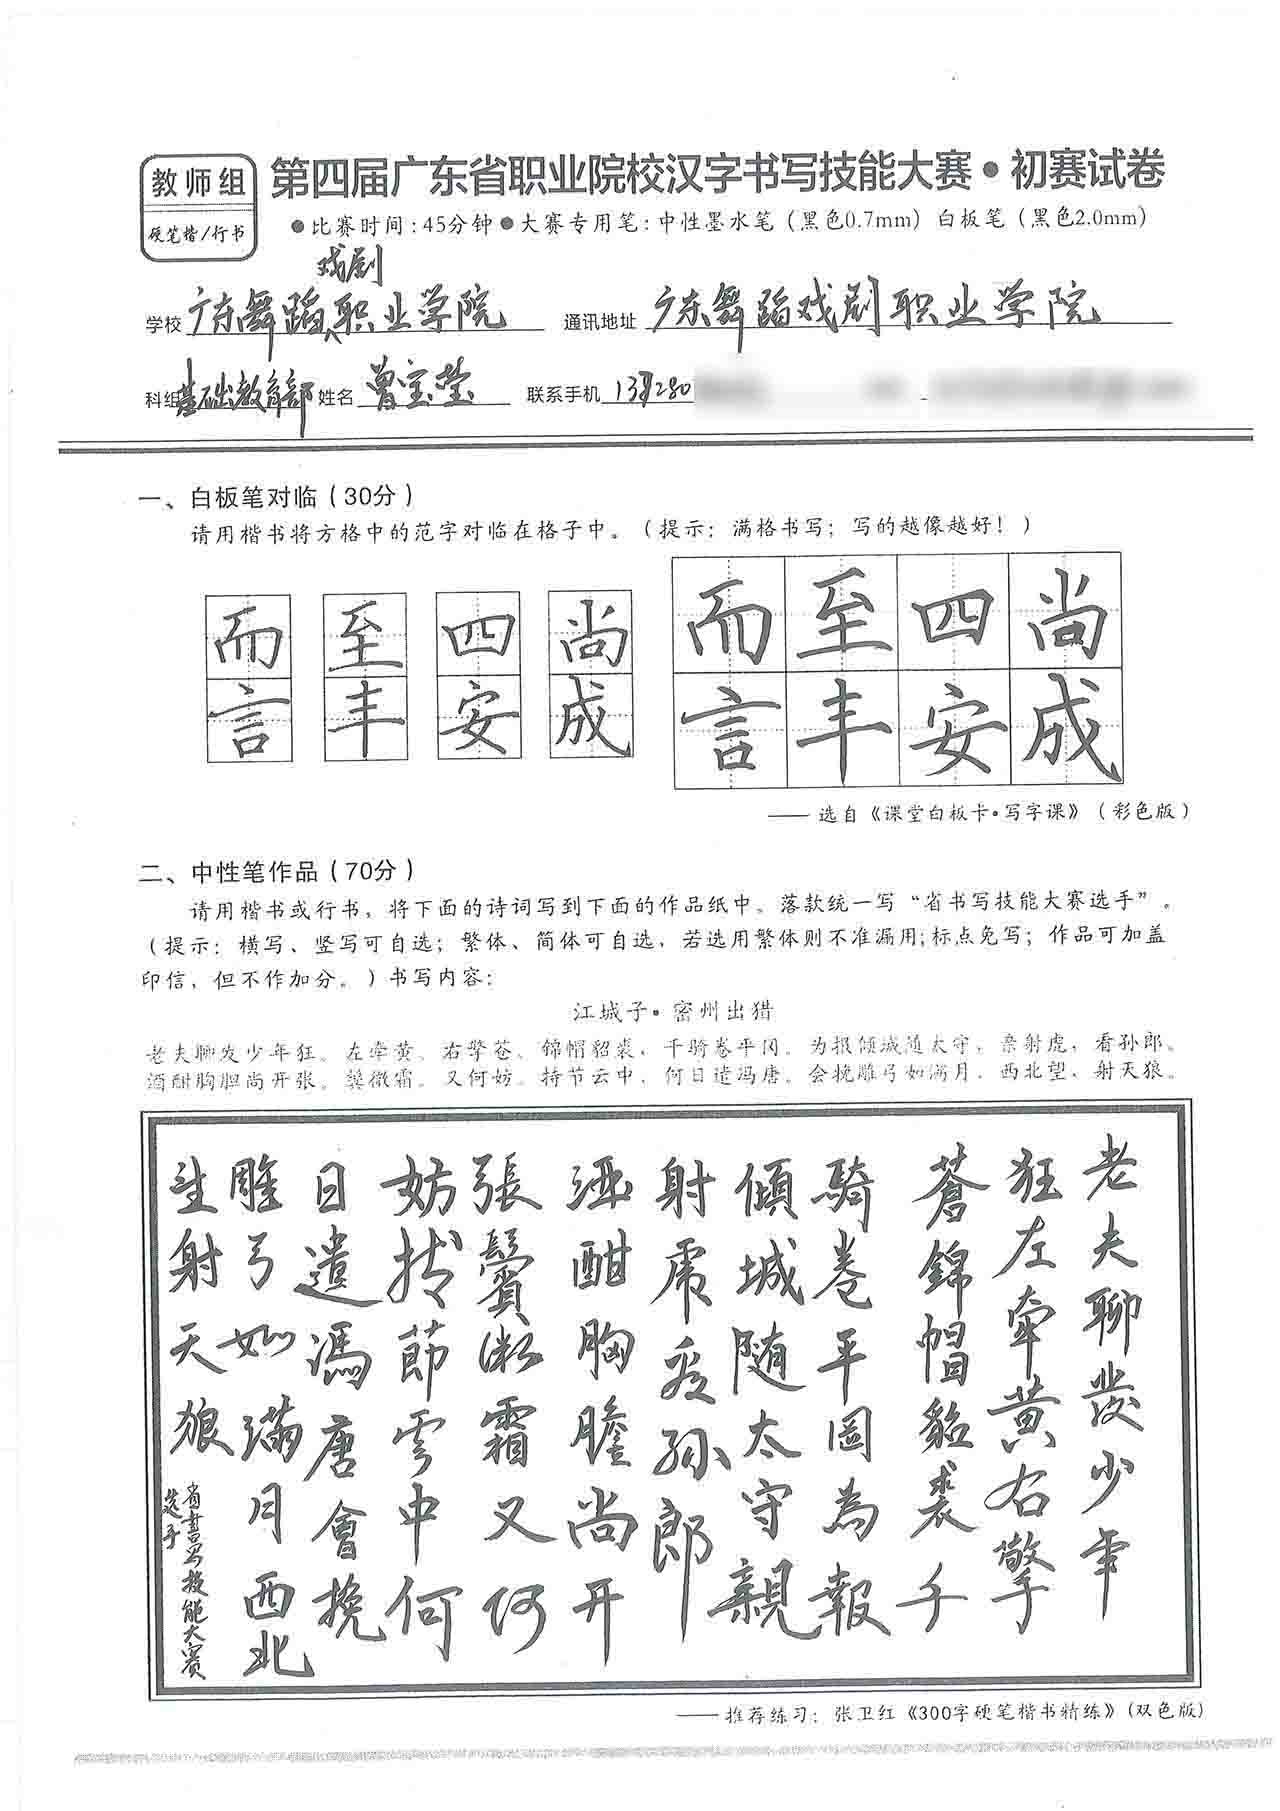 教师组
硬笔楷/行书
第四届广东省职业院校汉字书写技能大赛•初赛试卷
●比赛时间:45分钟●大赛专用笔:中性墨水笔(黑色0.7mm)白板笔(黑色2.0mm)
戏剧
学校 广东舞蹈职业学院 通讯地址 广东舞蹈戏剧职业学院
科组 基础教育部 姓名 曾宝莹 联系手机
一、白板笔对临(30分)
请用楷书将方格中的范字对临在格子中。(提示:满格书写;写的越像越好!)
而 至 四 尚 而 至 四 尚
言 丰 安 成 言 丰 安 成
——选自《课堂白板卡•写字课》(彩色版)
二、中性笔作品(70分)
请用楷书或行书,将下面的诗词写到下面的作品纸中。落款统一写“省书写技能大赛选手”。
(提示:横写、竖写可自选;繁体、简体可自选,若选用繁体则不准漏用;标点免写;作品可加盖
印信,但不作加分。)书写内容:
江城子•密州出猎
老夫聊发少年狂。左牵黄。右擎苍。锦帽貂裘,千骑卷平冈。为报倾城随太守,亲射虎,看孙郎。
酒酣胸胆尚开张。鬓微霜。又何妨。持节云中,何日遣冯唐。会挽雕弓如满月,西北望,射天狼。
老夫聊發少年
狂左牵黄右擎
蒼錦帽貂裘千
騎卷平岡為報
傾城随太守親
射虎看孫郎
酒酣胸膽尚开
張鬢微霜又何
妨持節雲中何
日遣馮唐會挽
雕弓如满月西北
望射天狼
省書写技能大賽
选手
——推荐练习:张卫红《300字硬笔楷书精练》(双色版)